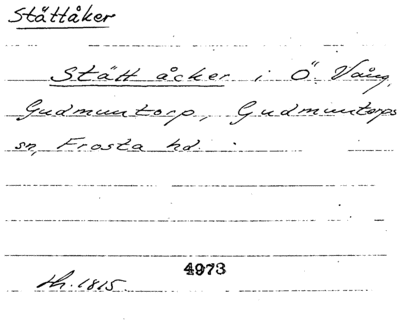 Stättåker
Stätt åcker i Ö. Vång,
Gudmuntorp, Gudmuntorps
sn, Frosta hd.
4973
h. 1815.